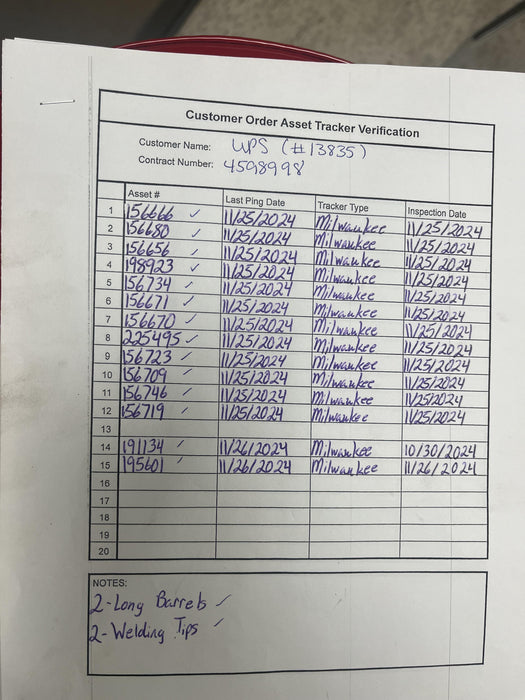 Customer Order Asset Tracker Verification
Customer Name: UPS (#13835)
Contract Number: 4598998
Asset # Last Ping Date Tracker Type Inspection Date
1 156666 ✓ 11/25/2024 Milwaukee 11/25/2024
2 156680 ✓ 11/25/2024 Milwaukee 11/25/2024
3 156656 ✓ 11/25/2024 Milwaukee 11/25/2024
4 198923 ✓ 11/25/2024 Milwaukee 11/25/2024
5 156734 ✓ 11/25/2024 Milwaukee 11/25/2024
6 156671 ✓ 11/25/2024 Milwaukee 11/25/2024
7 156670 ✓ 11/25/2024 Milwaukee 11/25/2024
8 225495 ✓ 11/25/2024 Milwaukee 11/25/2024
9 156723 ✓ 11/25/2024 Milwaukee 11/25/2024
10 156709 ✓ 11/25/2024 Milwaukee 11/25/2024
11 156746 ✓ 11/25/2024 Milwaukee 11/25/2024
12 156719 ✓ 11/25/2024 Milwaukee 11/25/2024
13
14 191134 ✓ 11/26/2024 Milwaukee 10/30/2024
15 195601 ✓ 11/26/2024 Milwaukee 11/26/2024
16
17
18
19
20
NOTES:
2-Long Barrels ✓
2-Welding Tips ✓